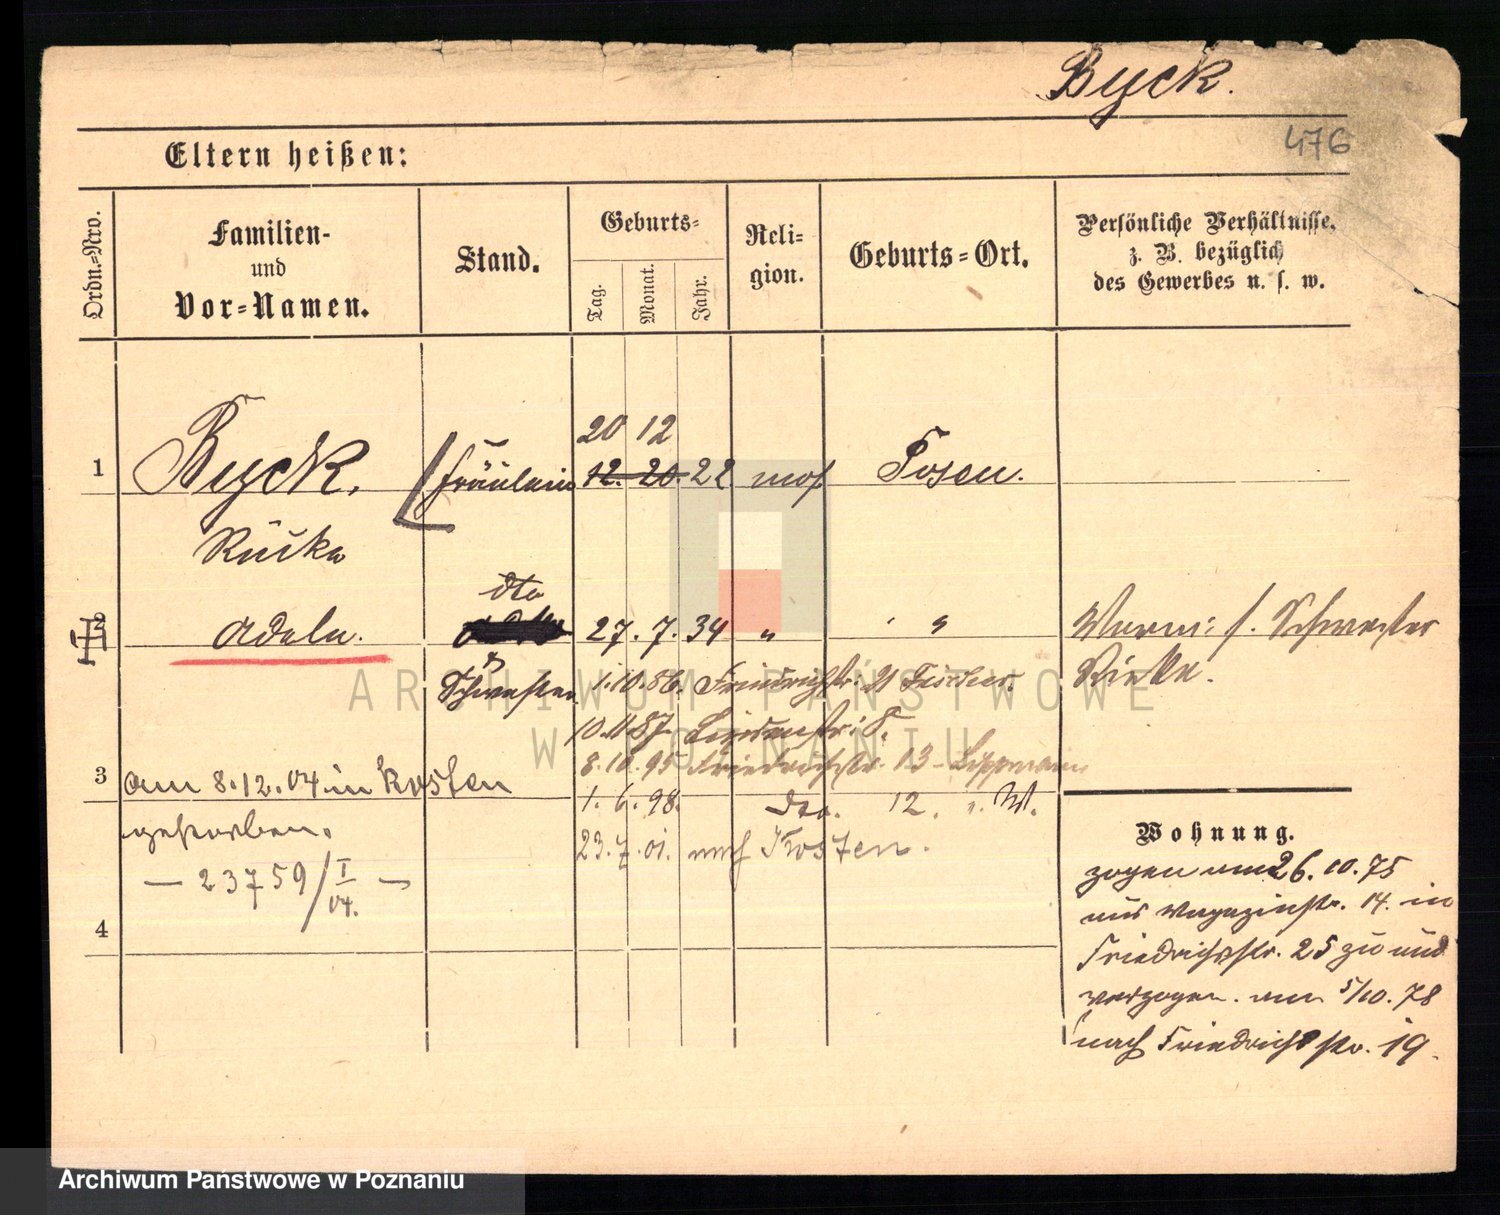 Byck.
476
Eltern heißen:
Ordn.-Nro.
Familien-
und
Vor-Namen.
Stand.
Geburts-
Tag.
Monat.
Jahr.
Reli-
gion.
Geburts-Ort.
Persönliche Verhältnisse,
z. B. bezüglich
des Gewerbes u. s. w.
20 12
1 Byck. Fräulein 12. 20. 22 mos Posen.
dto
2 Adele. 27. 7. 34 " " Schwester
Schwester 1.10.86. Friedrichstr. 21
10.11.87.
8.10.95 Friedrichstr. 13 Lippmann
3 am 8.12.04 in Kosten
1. 6. 98. dto. 12.
gestorben.
23.7.01. nach Kosten.
— 23759/I/04. —
4
Wohnung.
zogen am 26.10.75
aus Magazinstr. 14. in
Friedrichsstr. 25 zu und
verzogen am 5/10.78
nach Friedrichsstr. 19.
ARCHIWUM PAŃSTWOWE
W POZNANIU
Archiwum Państwowe w Poznaniu